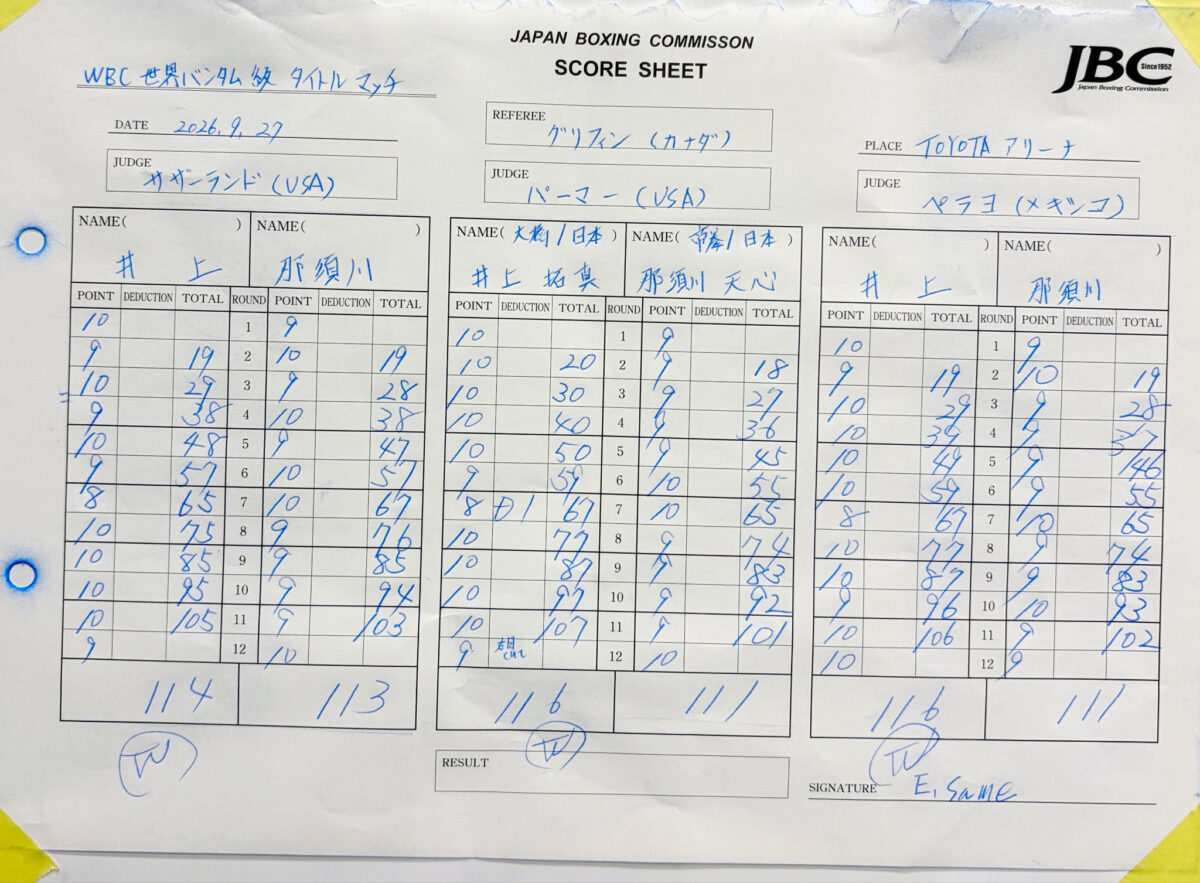 JAPAN BOXING COMMISSON
SCORE SHEET
JBC Since 1952
Japan Boxing Commission
WBC 世界バンタム級 タイトルマッチ
DATE 2026.9.27
REFEREE グリフィン (カナダ)
PLACE TOYOTA アリーナ
JUDGE サザーランド (USA)
JUDGE パーマー (USA)
JUDGE ペラヨ (メキシコ)
NAME( ) NAME( )
井上 那須川
POINT DEDUCTION TOTAL ROUND POINT DEDUCTION TOTAL
10 1 9
9 19 2 10 19
10 29 3 9 28
9 38 4 10 38
10 48 5 9 47
9 57 6 10 57
8 65 7 10 67
10 75 8 9 76
10 85 9 9 85
10 95 10 9 94
10 105 11 9 103
9 12 10
114 113
NAME( 大橋/日本 ) NAME( 帝拳/日本 )
井上 拓真 那須川 天心
POINT DEDUCTION TOTAL ROUND POINT DEDUCTION TOTAL
10 1 9
10 20 2 9 18
10 30 3 9 27
10 40 4 9 36
10 50 5 9 45
9 59 6 10 55
8 D1 67 7 10 65
10 77 8 9 74
10 87 9 9 83
10 97 10 9 92
10 107 11 9 101
9 右目cut 12 10
116 111
NAME( ) NAME( )
井上 那須川
POINT DEDUCTION TOTAL ROUND POINT DEDUCTION TOTAL
10 1 9
9 19 2 10 19
10 29 3 9 28
10 39 4 9 37
10 49 5 9 46
10 59 6 9 55
8 67 7 10 65
10 77 8 9 74
10 87 9 9 83
9 96 10 10 93
10 106 11 9 102
10 12 9
116 111
RESULT
SIGNATURE E. Same